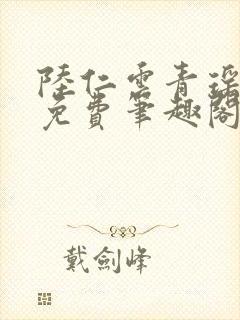 陸仁雲青瑤
免費筆趣閣
戴劍峰